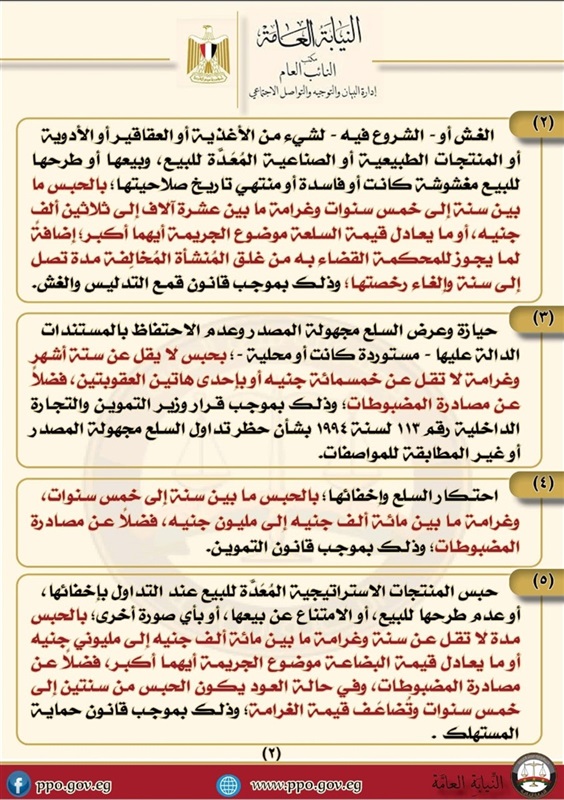 النيابة العامة
مكتب
النائب العام
إدارة البيان والتوجيه والتواصل الاجتماعي
(٢)
الغش أو- الشروع فيه - لشيء من الأغذية أو العقاقير أو الأدوية
أو المنتجات الطبيعية أو الصناعية المُعَدَّة للبيع، وبيعها أو طرحها
للبيع مغشوشة كانت أو فاسدة أو منتهي تاريخ صلاحيتها؛ بالحبس ما
بين سنة إلى خمس سنوات وغرامة ما بين عشرة آلاف إلى ثلاثين ألف
جنيه، أو ما يعادل قيمة السلعة موضوع الجريمة أيهما أكبر؛ إضافةً
لما يجوز للمحكمة القضاء به من غلق المُنشأة المُخالِفة مدة تصل
إلى سنة وإلغاء رخصتها؛ وذلك بموجب قانون قمع التدليس والغش.
(٣)
حيازة وعرض السلع مجهولة المصدر وعدم الاحتفاظ بالمستندات
الدالة عليها - مستوردة كانت أو محلية -؛ بحبس لا يقل عن ستة أشهر
وغرامة لا تقل عن خمسمائة جنيه أو بإحدى هاتين العقوبتين، فضلًا
عن مصادرة المضبوطات؛ وذلك بموجب قرار وزير التموين والتجارة
الداخلية رقم ١١٣ لسنة ١٩٩٤ بشأن حظر تداول السلع مجهولة المصدر
أو غير المطابقة للمواصفات.
(٤)
احتكار السلع وإخفائها؛ بالحبس ما بين سنة إلى خمس سنوات،
وغرامة ما بين مائة ألف جنيه إلى مليون جنيه، فضلًا عن مصادرة
المضبوطات؛ وذلك بموجب قانون التموين.
(٥)
حبس المنتجات الاستراتيجية المُعَدَّة للبيع عند التداول بإخفائها،
أو عدم طرحها للبيع، أو الامتناع عن بيعها، أو بأي صورة أخرى؛ بالحبس
مدة لا تقل عن سنة وغرامة ما بين مائة ألف جنيه إلى مليوني جنيه
أو ما يعادل قيمة البضاعة موضوع الجريمة أيهما أكبر، فضلًا عن
مصادرة المضبوطات، وفي حالة العود يكون الحبس من سنتين إلى
خمس سنوات وتُضاعَف قيمة الغرامة؛ وذلك بموجب قانون حماية
المستهلك .
(٢)
ppo.gov.eg
www.ppo.gov.eg
النيابة العامة